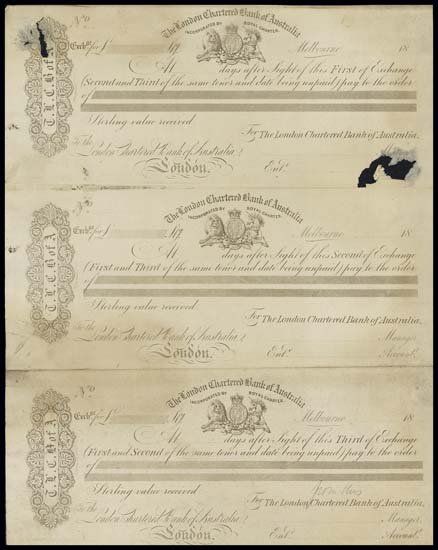 No
The London Chartered Bank of Australia
INCORPORATED BY ROYAL CHARTER.
Exch. for £ Melbourne 18
At days after Sight of this First of Exchange
(Second and Third of the same tenor and date being unpaid) pay to the order
of
Sterling value received
For The London Chartered Bank of Australia.
To the
London Chartered Bank of Australia
London.
Entd.
T. L. C. B of A.
No
The London Chartered Bank of Australia
INCORPORATED BY ROYAL CHARTER.
Exch. for £ Melbourne 18
At days after Sight of this Second of Exchange
(First and Third of the same tenor and date being unpaid) pay to the order
of
Sterling value received
For The London Chartered Bank of Australia.
To the
London Chartered Bank of Australia
Manager.
London.
Entd.
Account.
T. L. C. B of A.
No
The London Chartered Bank of Australia
INCORPORATED BY ROYAL CHARTER.
Exch. for £ Melbourne 18
At days after Sight of this Third of Exchange
(First and Second of the same tenor and date being unpaid) pay to the order
of
Sterling value received
For The London Chartered Bank of Australia.
To the
London Chartered Bank of Australia
Manager.
London.
Entd.
Account.
T. L. C. B of A.